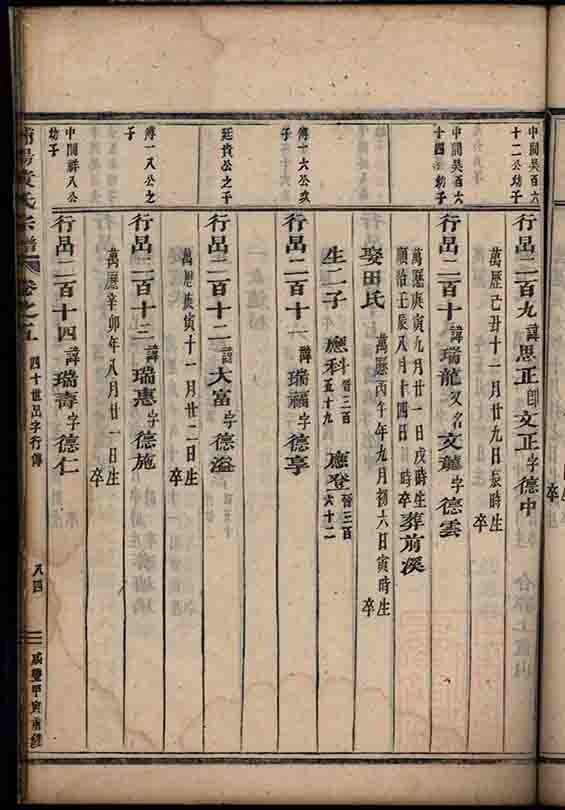 中關吳百六
十二公幼子
行昌二百九諱思正卽文正字德中
萬歷己丑十一月廿九日辰時生
卒
中關吳百六
十四公幼子
行昌二百十諱瑞龍又名文龍字德雲
萬歷庚寅九月廿一日戌時生
順治壬辰八月十四日時卒葬前溪
娶田氏
萬歷丙午年九月初六日寅時生
卒
生二子
應科晉三百五十九
應登晉三百六十二
傳十六公次
子
行昌二百十一諱瑞福字德享
廷貴公之子
行昌二百十二諱大富字德溢
萬歷庚寅十一月廿二日生
卒
傳一八公之
子
行昌二百十三諱瑞惠字德施
萬歷辛卯年八月廿一日生
卒
中關祥八公
幼子
行昌二百十四諱瑞壽字德仁
黃氏宗譜
卷之五
四十世昌字行傳
八四
咸豐甲寅重修